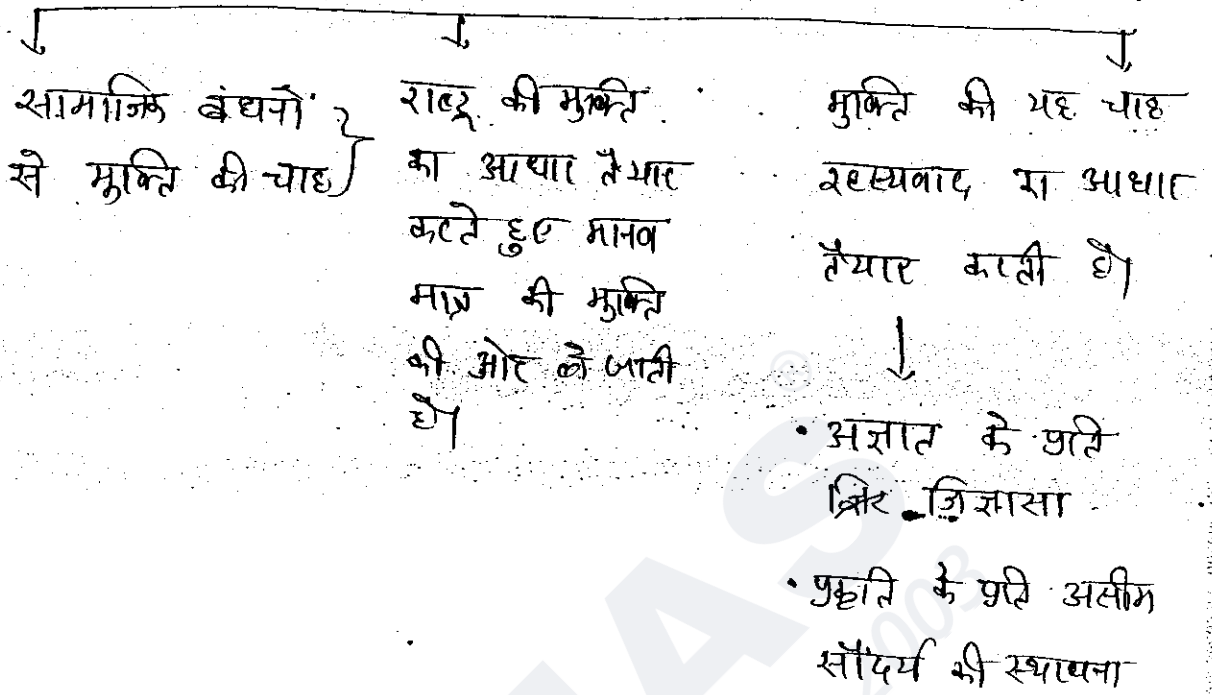 सामाजिक बंधनों
से मुक्ति की चाह
राष्ट्र की मुक्ति
का आधार तैयार
करते हुए मानव
मात्र की मुक्ति
की ओर ले जाती
है।
मुक्ति की यह चाह
रहस्यवाद का आधार
तैयार करती है।
• अज्ञात के प्रति
जिज्ञासा
• प्रकृति के प्रति असीम
सौंदर्य की स्थापना
IAS
2003